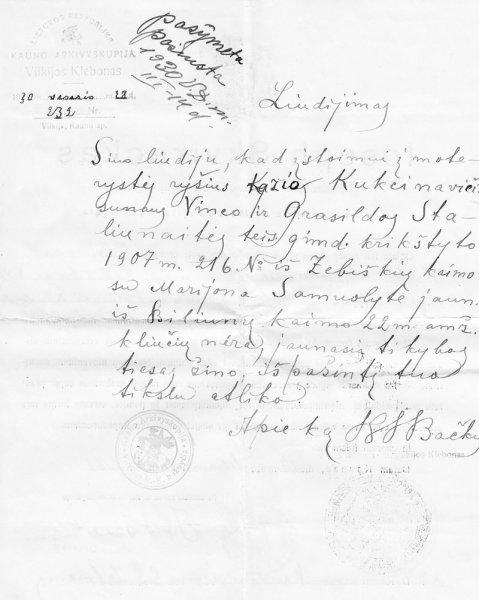 LIETUVOS RESPUBLIKA
KAUNO ARKIVYSKUPIJA
Vilkijos Klebonas
30 vasario 22
232 Nr.
Vilkija, Kauno ap.
pažymėta
pasiųsta
1930
III-14 d.
Liudijimas
Šiuo liudiju, kad stoimui į mote-
rystės ryšius Kazio Kukcinavičiaus
sunaus Vinco ir Grasildos Sta-
liunaitės teis. gimd. krikštyto
1907 m. 216 No iš Žebiškių kaimo
su Marijona Samuolyte jaun.
iš Biliunų kaimo 22 m. amž.
kliučių nėra, jaunasis tikybos
tiesas žino, išpažintį tuo
tikslu atliko
Apie ką
Vilkijos Klebonas